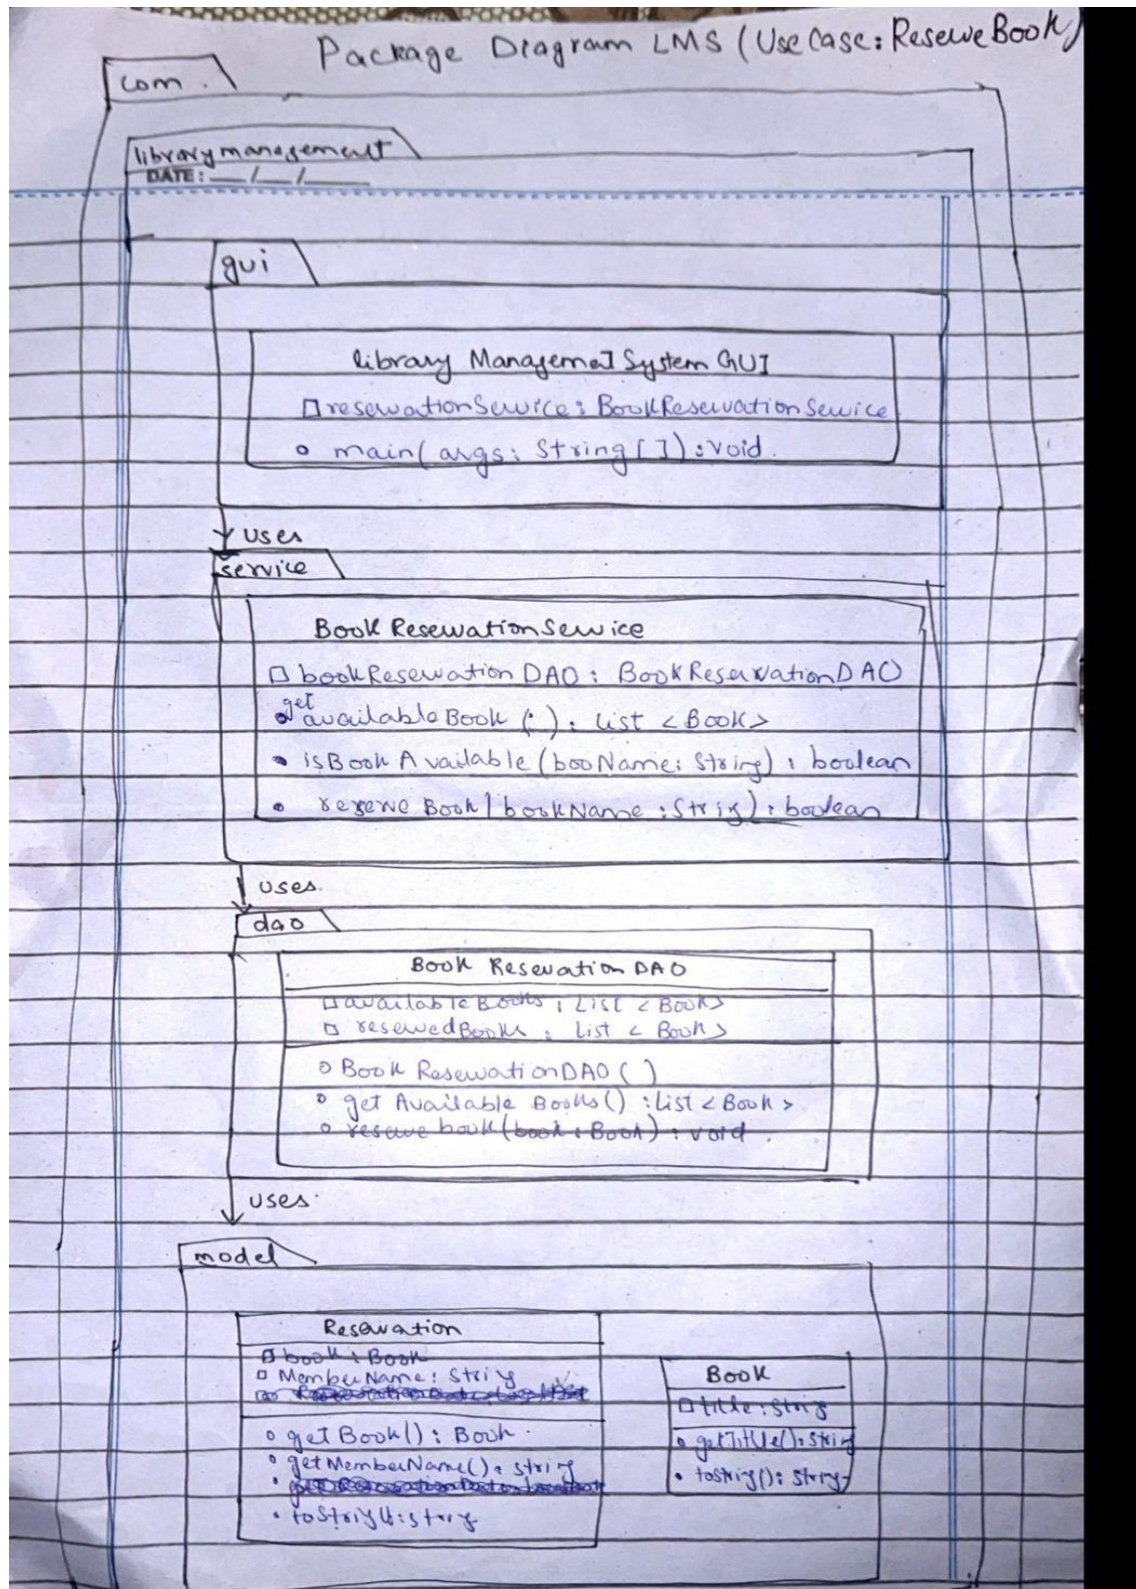 Package Diagram LMS (Use Case: ReserveBook)
com.
librarymanagement
DATE: __/__/____
gui
library Management System GUI
reservationService: BookReservationService
main(args: String[]): void.
uses
service
Book Reservation Service
bookReservationDAO: BookReservationDAO
get
availableBook (:): List <Book>
isBook Available (booName: String): boolean
reserve Book(bookName: Strig): boolean
uses.
dao
Book Reservation DAO
availableBooks: List <Book>
reservedBooks: List < Book>
Book ReservationDAO ()
get Available Books(): List <Book>
reserve book (book: Book): void.
uses.
model
Reservation
book: Book
MemberName: Strig
getBook(): Book.
getMemberName(): String
toStrig(): Strig
Book
title: String
getTitle(): String
tostrig(): Strig